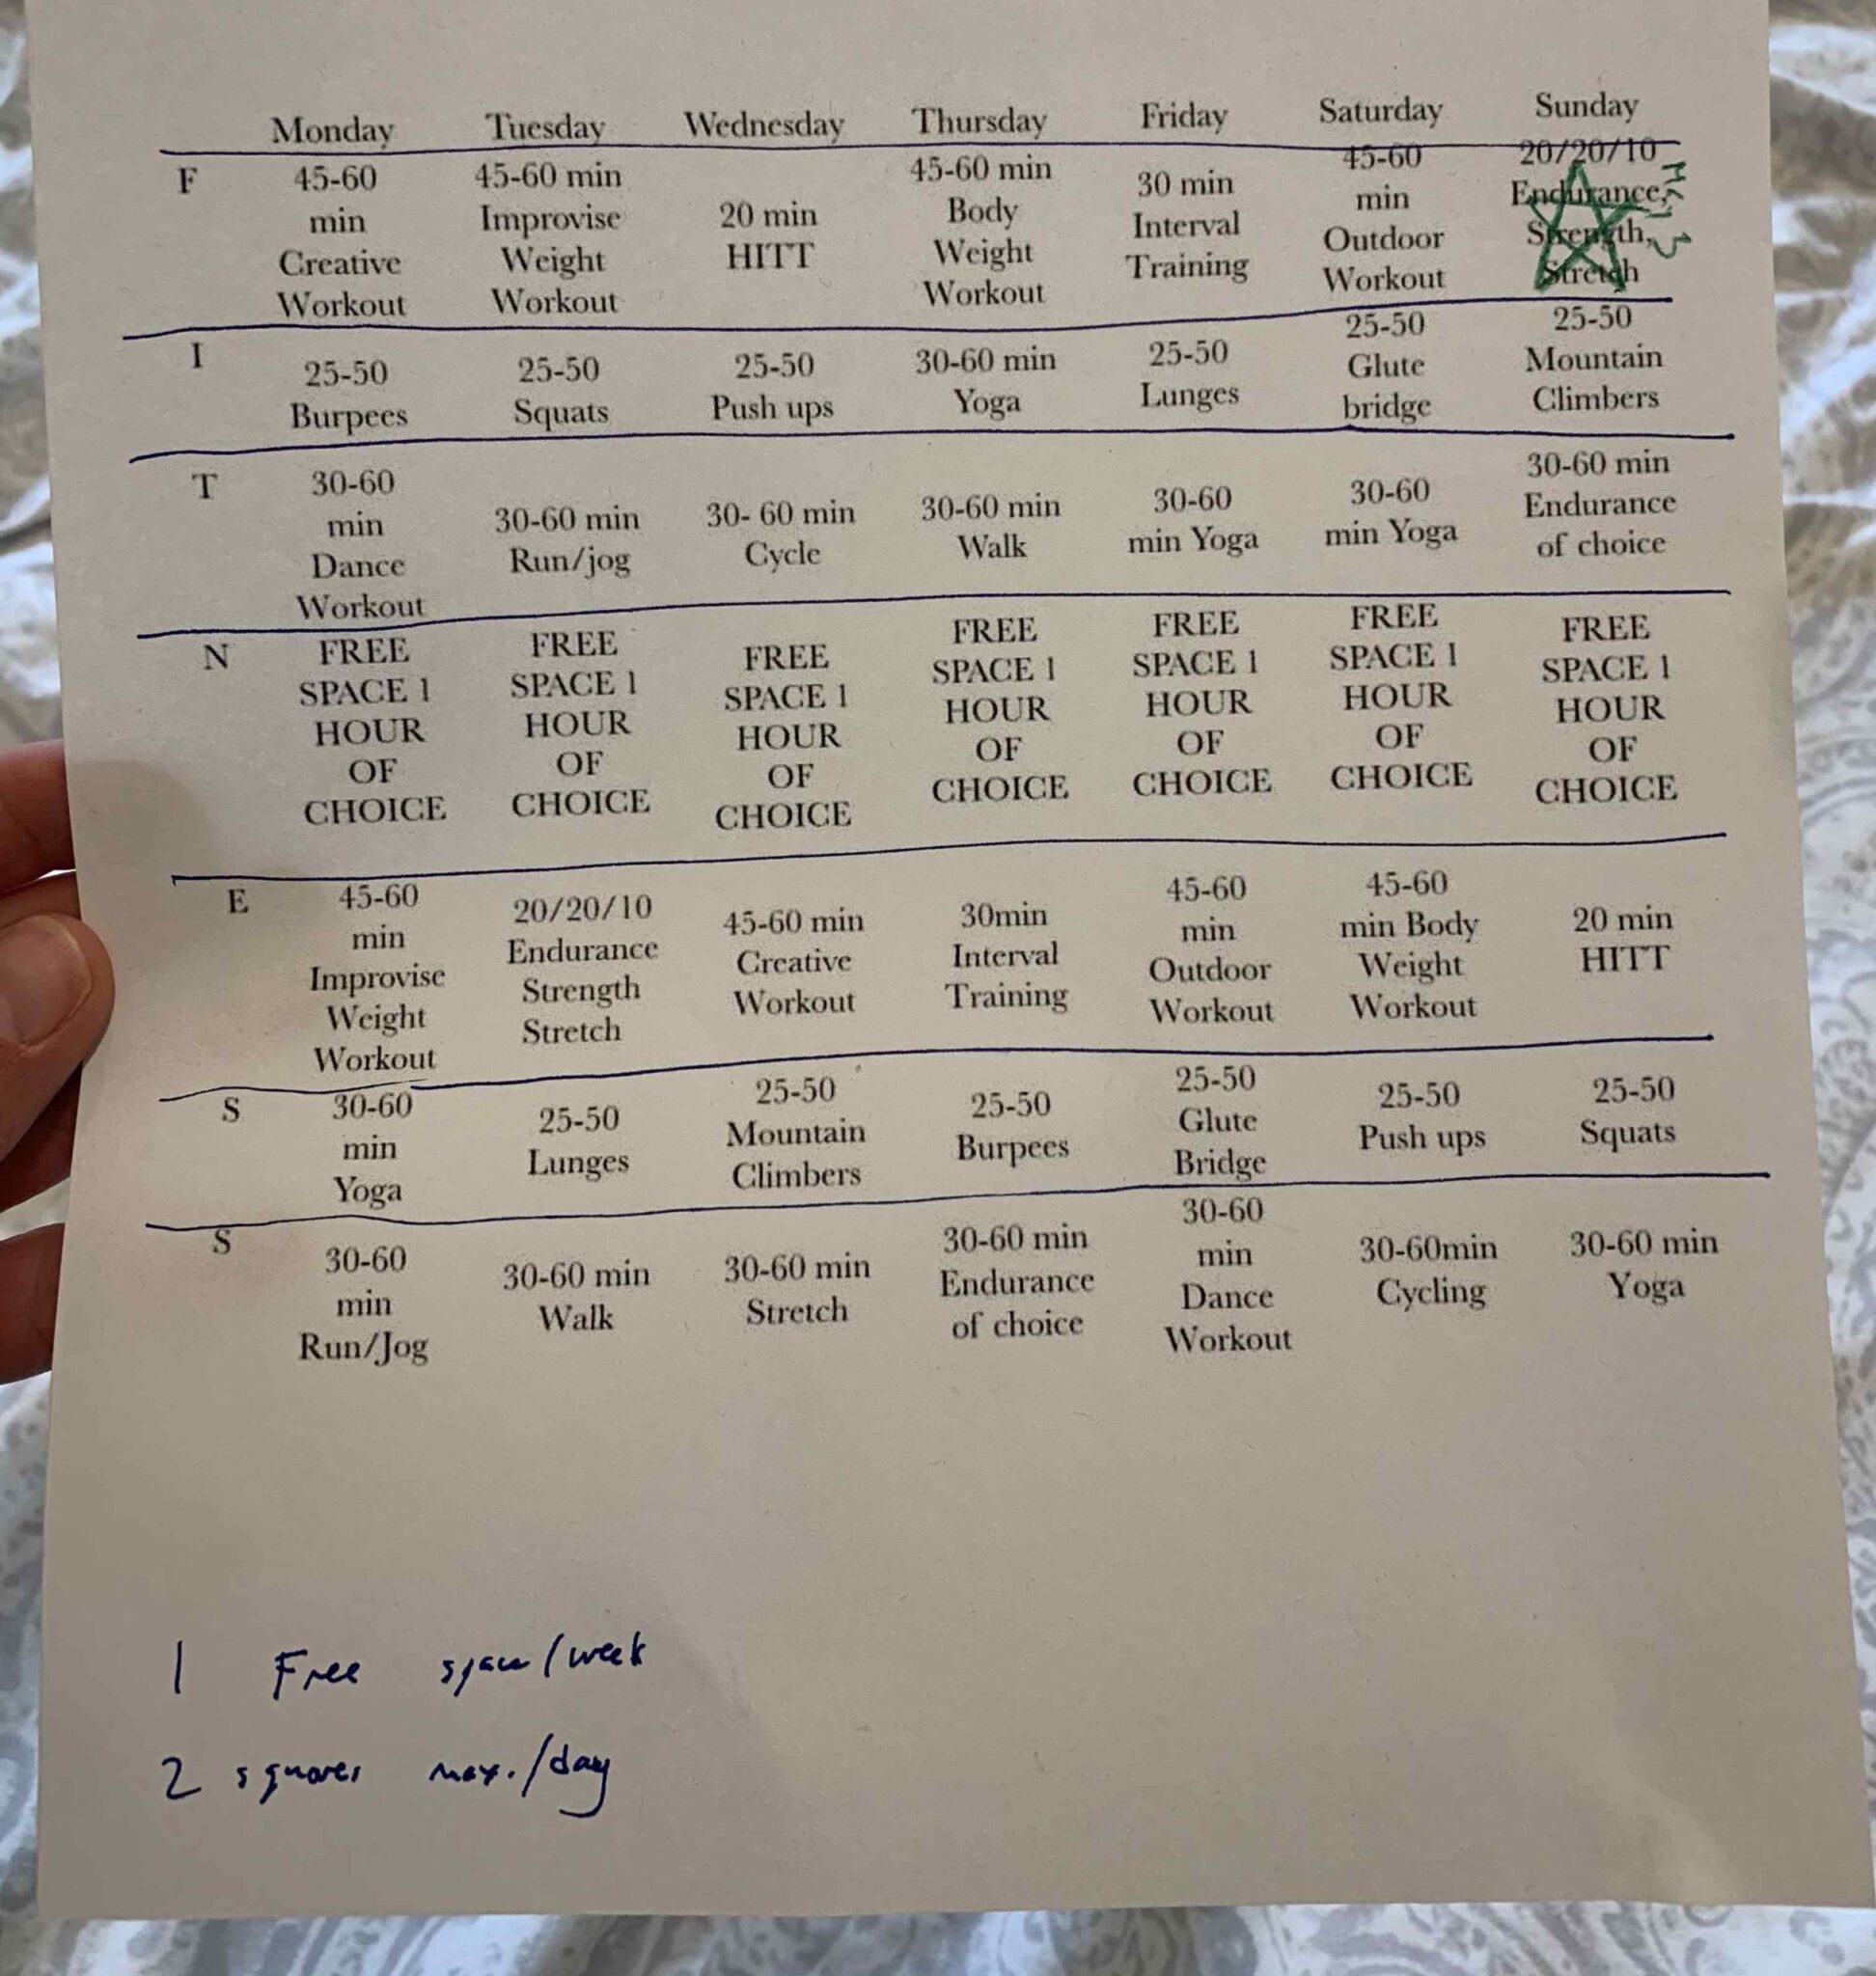 Monday Tuesday Wednesday Thursday Friday Saturday Sunday
F
45-60
min
Creative
Workout
45-60 min
Improvise
Weight
Workout
20 min
HITT
45-60 min
Body
Weight
Workout
30 min
Interval
Training
45-60
min
Outdoor
Workout
20/20/10
Endurance,
Strength,
Stretch
I
25-50
Burpees
25-50
Squats
25-50
Push ups
30-60 min
Yoga
25-50
Lunges
25-50
Glute
bridge
25-50
Mountain
Climbers
T
30-60
min
Dance
Workout
30-60 min
Run/jog
30- 60 min
Cycle
30-60 min
Walk
30-60
min Yoga
30-60
min Yoga
30-60 min
Endurance
of choice
N
FREE
SPACE 1
HOUR
OF
CHOICE
FREE
SPACE 1
HOUR
OF
CHOICE
FREE
SPACE 1
HOUR
OF
CHOICE
FREE
SPACE 1
HOUR
OF
CHOICE
FREE
SPACE 1
HOUR
OF
CHOICE
FREE
SPACE 1
HOUR
OF
CHOICE
FREE
SPACE 1
HOUR
OF
CHOICE
E
45-60
min
Improvise
Weight
Workout
20/20/10
Endurance
Strength
Stretch
45-60 min
Creative
Workout
30min
Interval
Training
45-60
min
Outdoor
Workout
45-60
min Body
Weight
Workout
20 min
HITT
S
30-60
min
Yoga
25-50
Lunges
25-50
Mountain
Climbers
25-50
Burpees
25-50
Glute
Bridge
25-50
Push ups
25-50
Squats
S
30-60
min
Run/Jog
30-60 min
Walk
30-60 min
Stretch
30-60 min
Endurance
of choice
30-60
min
Dance
Workout
30-60min
Cycling
30-60 min
Yoga
1 Free space/week
2 squares max./day